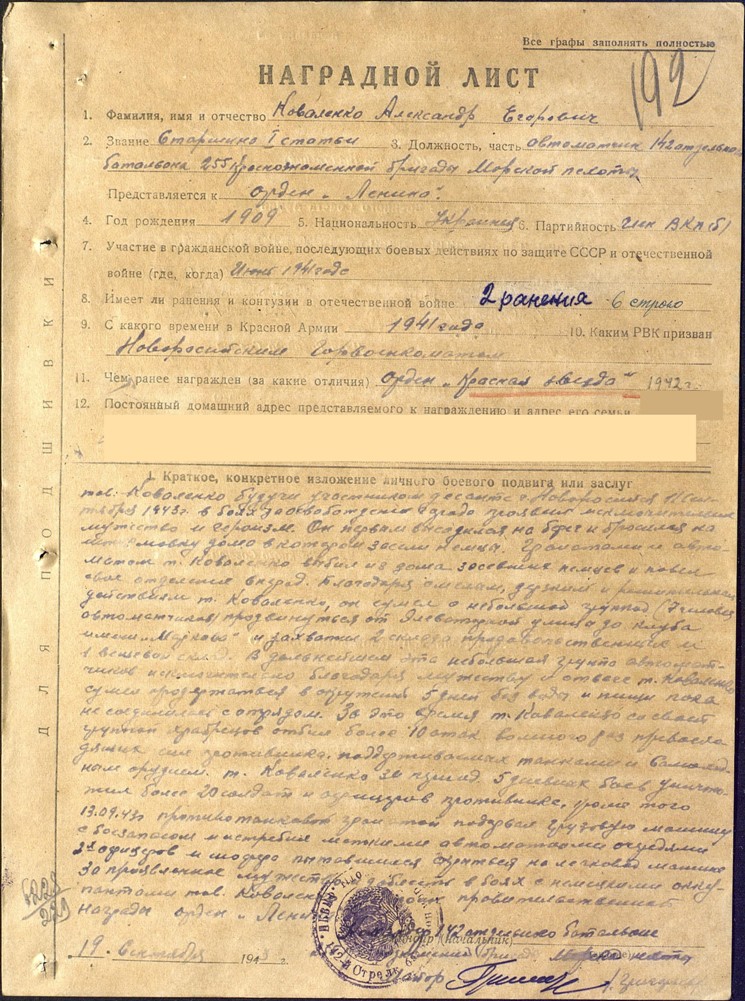 Все графы заполнять полностью
192
НАГРАДНОЙ ЛИСТ
1. Фамилия, имя и отчество Коваленко Александр Егорович
2. Звание Старшина I статьи 3. Должность, часть автоматчик 142 отдельно
батальона 255 Краснознаменной бригады Морской пехоты
Представляется к орден „Ленина".
4. Год рождения 1909 5. Национальность Украинец 6. Партийность член ВКП(б)
7. Участие в гражданской войне, последующих боевых действиях по защите СССР и отечественной
войне (где, когда) 1941 года
8. Имеет ли ранения и контузии в отечественной войне 2 ранения
9. С какого времени в Красной Армии 1941 года 10. Каким РВК призван
Новоросийским Горвоенкоматом
11. Чем ранее награжден (за какие отличия) орден „Красная звезда" 1942 г.
12. Постоянный домашний адрес представляемого к награждению и адрес его семьи
ДЛЯ ПОДШИВКИ
1. Краткое, конкретное изложение личного боевого подвига или заслуг
тов. Коваленко будучи участником десанта г. Новоросийск
1943г. в боях за освобождение города проявил исключительное
мужество и героизм. Он первым высадился на берег и бросился на
дома в котором засели немцы. Гранатами и авто-
матом т. Коваленко выбил из дома засевших немцев и повел
свое отделение вперед. Благодаря смелым, дерзким и решительным
действиям т. Коваленко, он сумел с небольшой группой
автоматчиков продвинуться от Элеваторной улицы до клуба
имени „Маркова" и захватил 2 склада продовольственных и
1 вещевой склад. В дальнейшем эта небольшая группа автомат-
чиков исключительно благодаря мужеству и отваге т. Коваленко
сумел продержаться в окружении 5 дней без воды и пищи пока
не соединилась с отрядом. За это время т. Коваленко со своей
группой храбрецов отбил более 10 атак во много раз превосхо-
дящих сил противника, поддерживаемых танками и самоход-
ным орудием. т. Коваленко за период 5 дневных боев уничто-
жил более 20 солдат и офицеров противника, кроме того
13.09.43г противотанковой гранатой подорвал грузовую машину
с боезапасом и истребил меткими автоматными очередями
офицеров и шофера пытавшихся на легковой машине
За проявленное мужество и доблесть в боях с немецкими окку-
пантами тов. Коваленко правительственной
награды орден „Лен
Командир 142 отдельно батальона
Командир (начальник)
бригады Морской пехоты
19 Сентября 1943
Майор